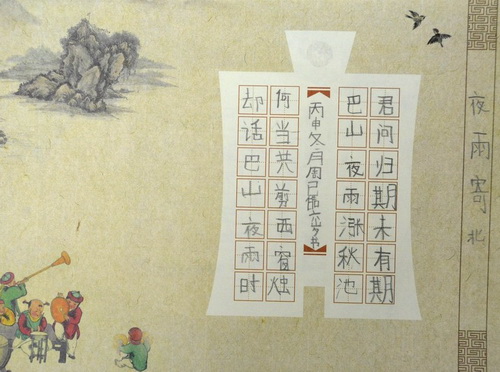 夜雨寄北
君问归期未有期
巴山夜雨涨秋池
丙申冬月周六岁书
何当共剪西窗烛
却话巴山夜雨时